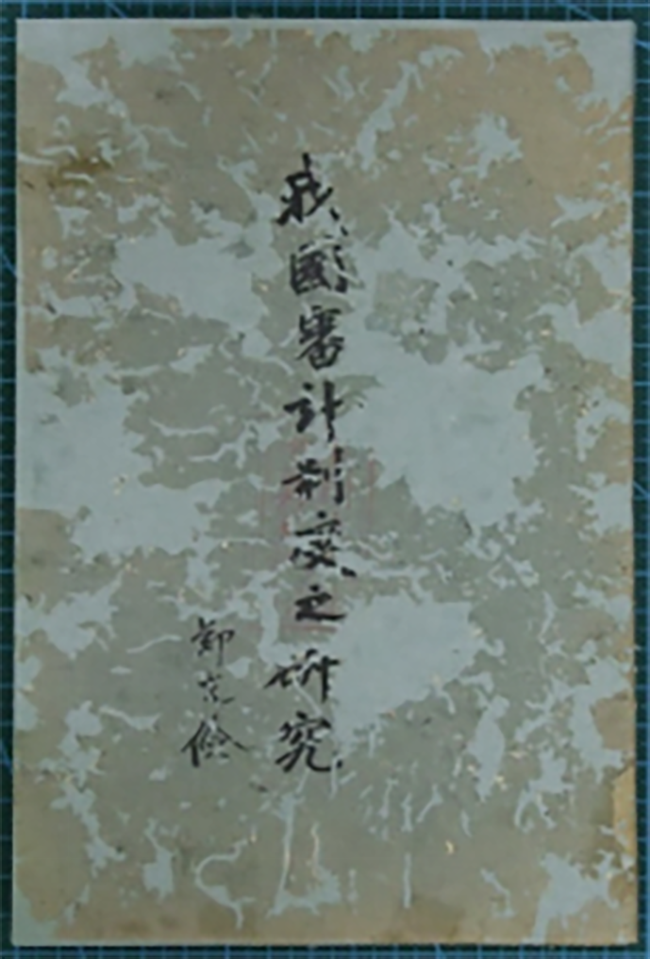 我國審計制度之研究
鄭克儉